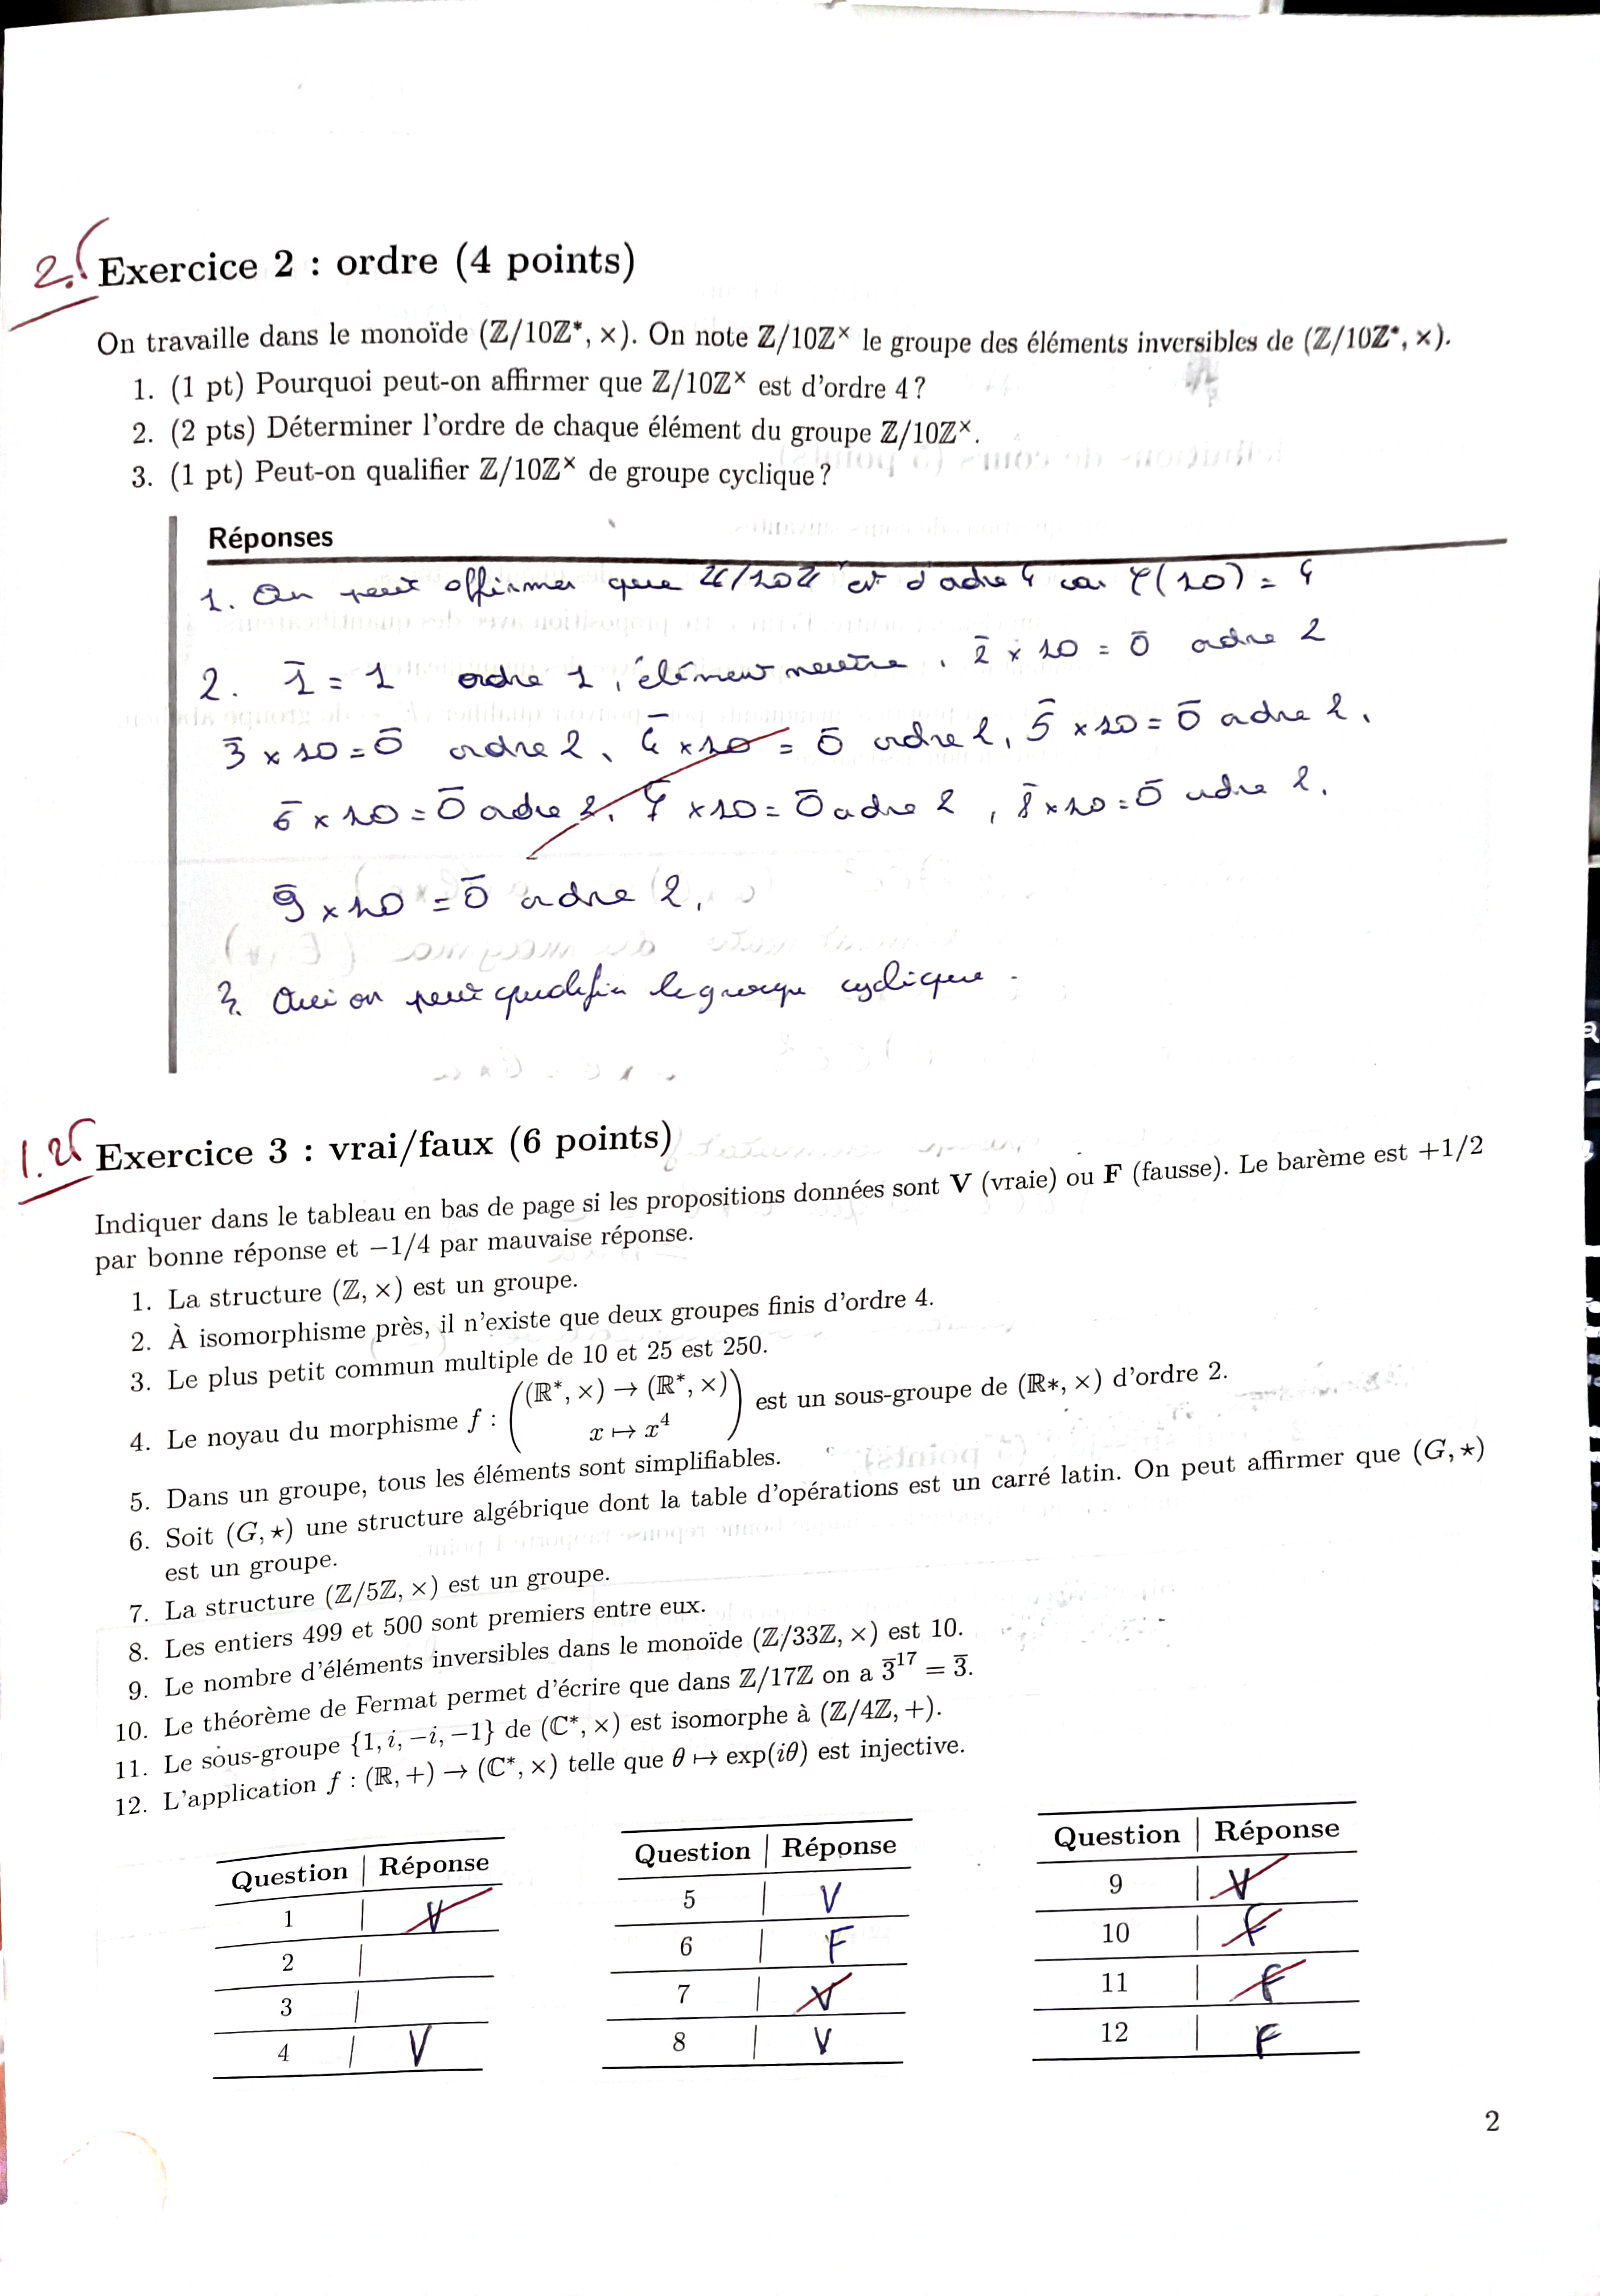 2.5
Exercice 2 : ordre (4 points)
On travaille dans le monoïde (ℤ/10ℤ*, ×). On note ℤ/10ℤ× le groupe des éléments inversibles de (ℤ/10ℤ*, ×).
1. (1 pt) Pourquoi peut-on affirmer que ℤ/10ℤ× est d'ordre 4 ?
2. (2 pts) Déterminer l'ordre de chaque élément du groupe ℤ/10ℤ×.
3. (1 pt) Peut-on qualifier ℤ/10ℤ× de groupe cyclique ?
Réponses
1. On peut affirmer que ℤ/10ℤ est d'ordre 4 car φ(10) = 4
2. 1̄ = 1 ordre 1, élément neutre, 2̄ × 10 = 0̄ ordre 2
3̄ × 10 = 0̄ ordre 2, 4̄ × 10 = 0̄ ordre 2, 5̄ × 10 = 0̄ ordre 2,
6̄ × 10 = 0̄ ordre 2, 7̄ × 10 = 0̄ ordre 2, 8̄ × 10 = 0̄ ordre 2,
9̄ × 10 = 0̄ ordre 2,
3. Oui on peut qualifier le groupe cyclique.
1.25
Exercice 3 : vrai/faux (6 points)
Indiquer dans le tableau en bas de page si les propositions données sont V (vraie) ou F (fausse). Le barème est +1/2
par bonne réponse et −1/4 par mauvaise réponse.
1. La structure (ℤ, ×) est un groupe.
2. À isomorphisme près, il n'existe que deux groupes finis d'ordre 4.
3. Le plus petit commun multiple de 10 et 25 est 250.
4. Le noyau du morphisme f : ((ℝ*, ×) → (ℝ*, ×) x ↦ x⁴) est un sous-groupe de (ℝ*, ×) d'ordre 2.
5. Dans un groupe, tous les éléments sont simplifiables.
6. Soit (G, ⋆) une structure algébrique dont la table d'opérations est un carré latin. On peut affirmer que (G, ⋆)
est un groupe.
7. La structure (ℤ/5ℤ, ×) est un groupe.
8. Les entiers 499 et 500 sont premiers entre eux.
9. Le nombre d'éléments inversibles dans le monoïde (ℤ/33ℤ, ×) est 10.
10. Le théorème de Fermat permet d'écrire que dans ℤ/17ℤ on a 3̄¹⁷ = 3̄.
11. Le sous-groupe {1, i, −i, −1} de (ℂ*, ×) est isomorphe à (ℤ/4ℤ, +).
12. L'application f : (ℝ, +) → (ℂ*, ×) telle que θ ↦ exp(iθ) est injective.
Question | Réponse
1 | V
2 |
3 |
4 | V
Question | Réponse
5 | V
6 | F
7 | V
8 | V
Question | Réponse
9 | V
10 | F
11 | F
12 | F
2